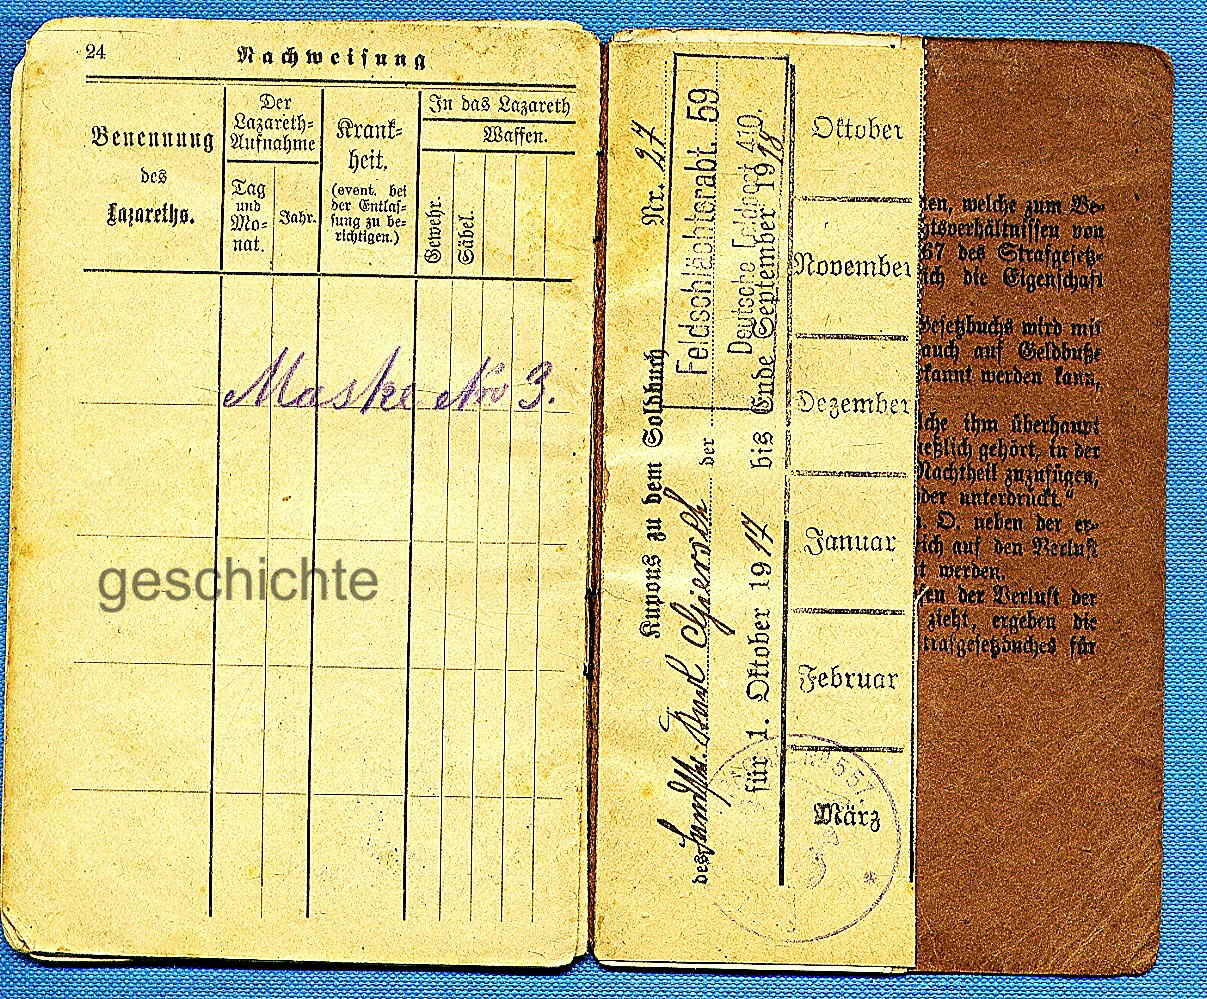 24
Nachweisung
Benennung
des
Lazareths.
Der
Lazareth-
Aufnahme
Tag
und
Mo-
nat.
Jahr.
Krank-
heit.
(event. bei
der Entlas-
sung zu be-
richtigen.)
In das Lazareth
Waffen.
Gewehr.
Säbel.
Maske No 3.
geschichte
Nr. 27
Kupons zu dem Soldbuch
des Landstm. Paul der
Feldschlächterabt. 59
Deutsche Feldpost 410.
für 1. Oktober 1917 bis Ende September 1918
Oktober
November
Dezember
Januar
Februar
März
ten, welche zum Be-
tsverhältnissen von
67 des Strafgesetz-
ich die Eigenschaft
Gesetzbuchs wird mit
auch auf Geldbuße
rkannt werden kann,
lche ihm überhaupt
ießlich gehört, in der
Nachtheil zuzufügen,
oder unterdrückt.“
. O. neben der er-
ich auf den Verlust
t werden.
sen der Verlust der
zieht, ergeben die
trafgesetzbuches für